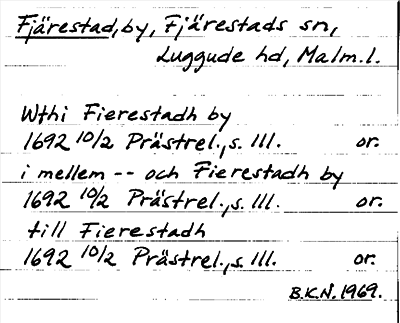 Fjärestad, by, Fjärestads sn,
Luggude hd, Malm.l.
Wthi Fierestadh by
1692 10/2 Prästrel., s. 111. or.
i mellem -- och Fierestadh by
1692 10/2 Prästrel., s. 111. or.
till Fierestadh
1692 10/2 Prästrel., s. 111. or.
B.K.N. 1969.